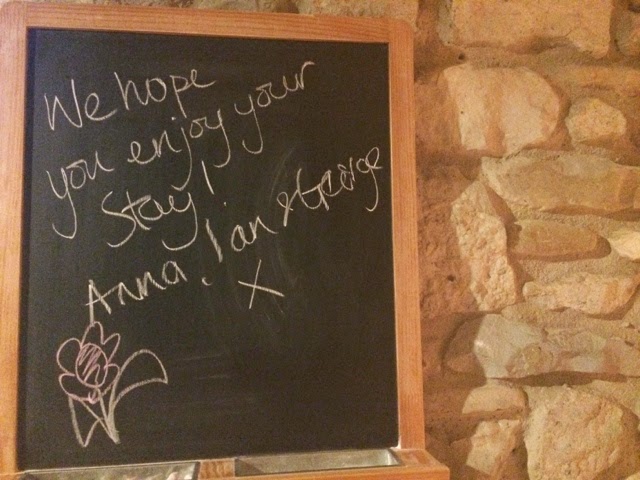 We hope
you enjoy your
Stay!
Anna, Ian & George
X